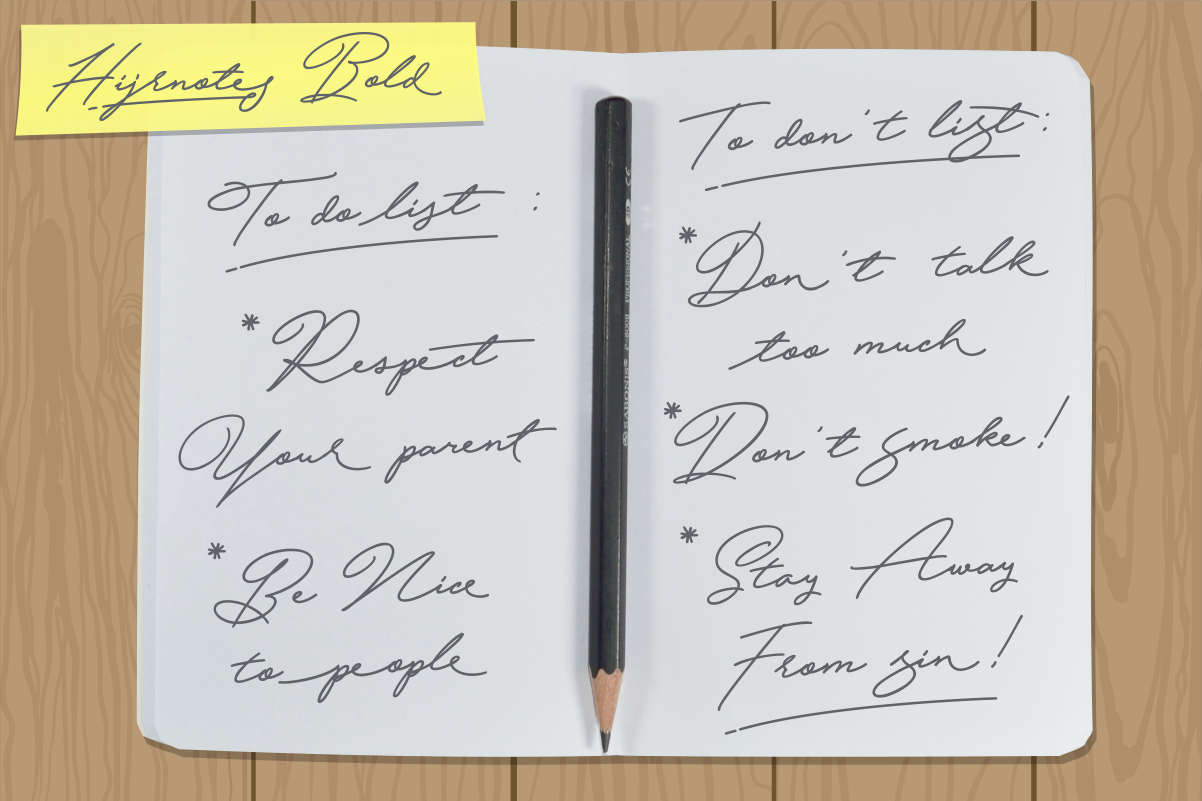 Hijrnotes Bold
To do list :
* Respect
Your parent
* Be Nice
to people
To don't list :
* Don't talk
too much
* Don't smoke !
* Stay Away
From sin !